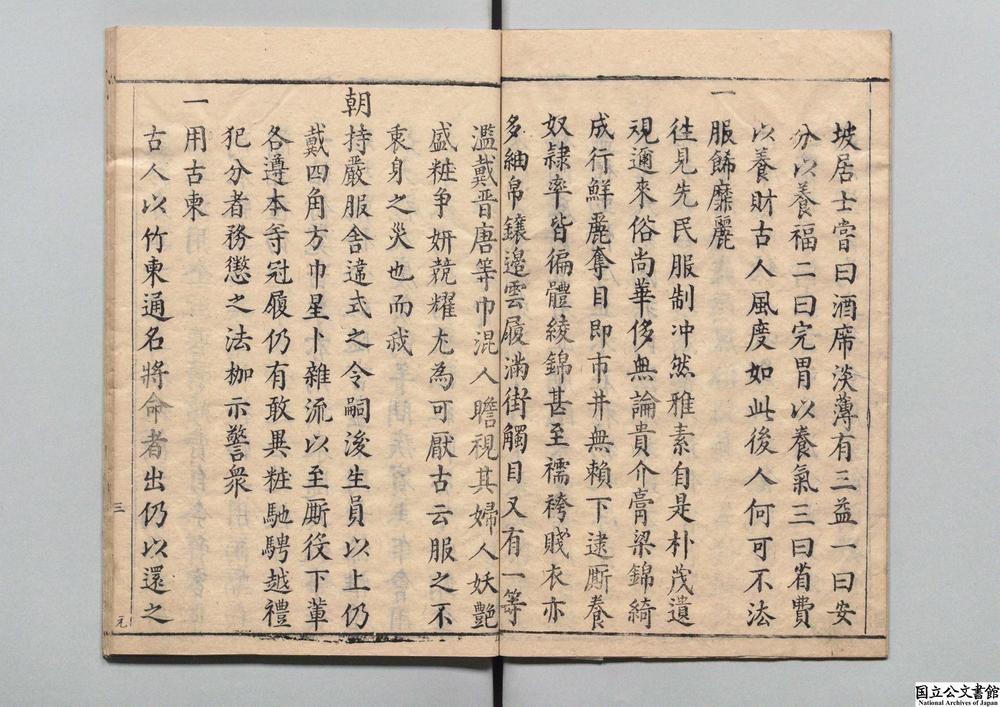 坡居士嘗曰酒席淡薄有三益一曰安
分以養福二曰完胃以養氣三曰省費
以養財古人風度如此後人何可不法
一
服餙靡麗
徃見先民服制冲然雅素自是朴茂遺
規邇來俗尚華侈無論貴介膏梁錦綺
成行鮮麗奪目即市井無賴下逮厮養
奴隷率皆徧體綾錦甚至襦袴賤衣亦
多紬帛鑲邉雲履滿街觸目又有一等
濫戴晋唐等巾混人瞻視其婦人妖艷
盛粧争妍競耀尤為可厭古云服之不
衷身之災也而我
朝持嚴服舍違式之令嗣後生員以上仍
戴四角方巾星卜雜流以至厮役下軰
各遵本等冠履仍有敢異粧馳騁越禮
犯分者務懲之法枷示警衆
一
用古柬
古人以竹柬通名將命者出仍以還之
三
元
国立公文書館
National Archives of Japan